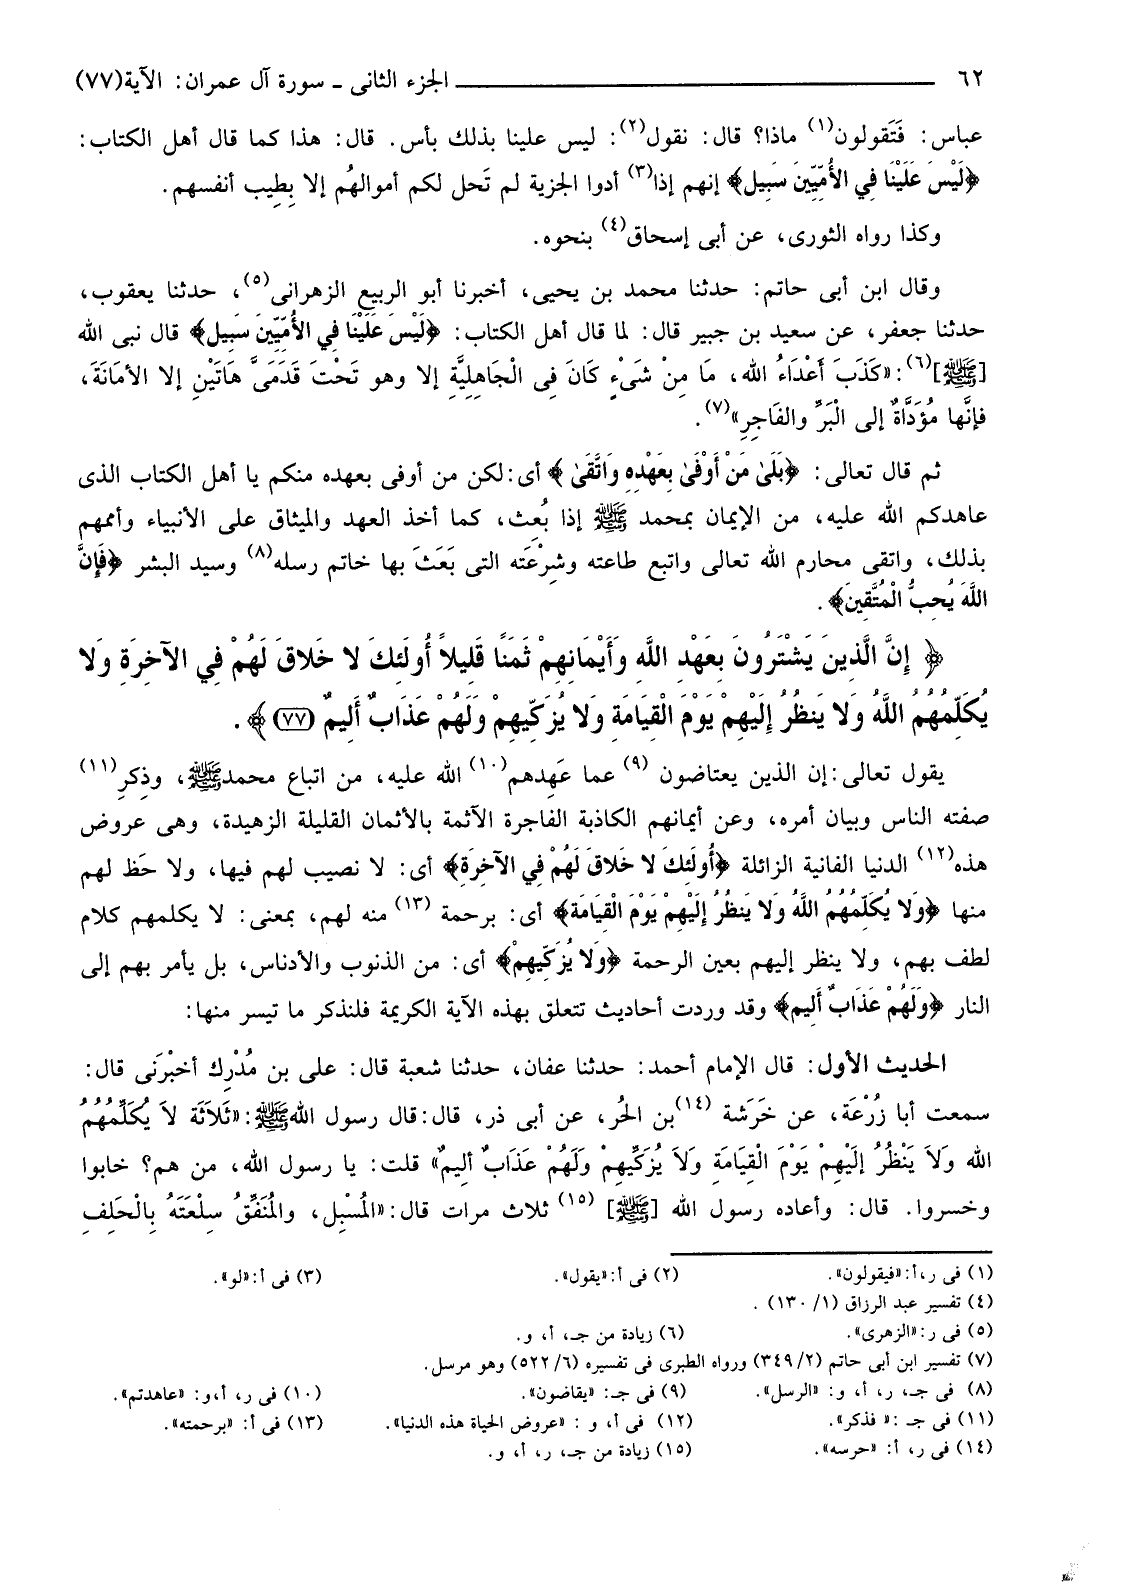 ٦٢ ــــــــــــــــــــ الجزء الثانى ـ سورة آل عمران: الآية(٧٧)
عباس: فَتَقولون(١) ماذا؟ قال: نقول(٢): ليس علينا بذلك بأس. قال: هذا كما قال أهل الكتاب:
﴿لَيْسَ عَلَيْنَا فِي الأُمِّيِّينَ سَبِيل﴾ إنهم إذا(٣) أدوا الجزية لم تَحل لكم أموالهُم إلا بِطِيب أنفسهم.
وكذا رواه الثورى، عن أبى إسحاق(٤) بنحوه.
وقال ابن أبى حاتم: حدثنا محمد بن يحيى، أخبرنا أبو الربيع الزهرانى(٥)، حدثنا يعقوب،
حدثنا جعفر، عن سعيد بن جبير قال: لما قال أهل الكتاب: ﴿لَيْسَ عَلَيْنَا فِي الأُمِّيِّينَ سَبِيل﴾ قال نبى الله
[ﷺ](٦):«كَذَبَ أَعْدَاءُ الله، مَا مِنْ شَىْءٍ كَانَ فِى الْجَاهِلِيَّةِ إلا وهو تَحْتَ قَدَمَىَّ هَاتَيْنِ إلا الأمَانَةَ،
فإنَّها مُؤَدَّاةٌ إلى الْبَرِّ والفَاجِرِ»(٧).
ثم قال تعالى: ﴿بَلَىٰ مَنْ أَوْفَىٰ بِعَهْدِهِ وَاتَّقَىٰ ﴾ أى:لكن من أوفى بعهده منكم يا أهل الكتاب الذى
عاهدكم الله عليه، من الإيمان بمحمد ﷺ إذا بُعث، كما أخذ العهد والميثاق على الأنبياء وأممهم
بذلك، واتقى محارم الله تعالى واتبع طاعته وشرْعَته التى بَعَثَ بها خاتم رسله(٨) وسيد البشر ﴿فَإِنَّ
اللَّهَ يُحِبُّ الْمُتَّقِينَ﴾.
﴿ إِنَّ الَّذِينَ يَشْتَرُونَ بِعَهْدِ اللَّهِ وَأَيْمَانِهِمْ ثَمَنًا قَلِيلاً أُولَئِكَ لا خَلاقَ لَهُمْ فِي الآخِرَةِ وَلا
يُكَلِّمُهُمُ اللَّهُ وَلا يَنظُرُ إِلَيْهِمْ يَوْمَ الْقِيَامَةِ وَلا يُزَكِّيهِمْ وَلَهُمْ عَذَابٌ أَلِيمٌ (٧٧) ﴾.
يقول تعالى:إن الذين يعتاضون (٩) عما عَهِدهم(١٠) الله عليه، من اتباع محمدﷺ، وذِكرِ(١١)
صفته الناس وبيان أمره، وعن أيمانهم الكاذبة الفاجرة الآثمة بالأثمان القليلة الزهيدة، وهى عروض
هذه(١٢) الدنيا الفانية الزائلة ﴿أُولَئِكَ لا خَلاقَ لَهُمْ فِي الآخِرَةِ﴾ أى: لا نصيب لهم فيها، ولا حَظ لهم
منها ﴿وَلا يُكَلِّمُهُمُ اللَّهُ وَلا يَنظُرُ إِلَيْهِمْ يَوْمَ الْقِيَامَةِ﴾ أى: برحمة (١٣) منه لهم، بمعنى: لا يكلمهم كلام
لطف بهم، ولا ينظر إليهم بعين الرحمة ﴿وَلا يُزَكِّيهِمْ﴾ أى: من الذنوب والأدناس، بل يأمر بهم إلى
النار ﴿وَلَهُمْ عَذَابٌ أَلِيم﴾ وقد وردت أحاديث تتعلق بهذه الآية الكريمة فلنذكر ما تيسر منها:
الحديث الأول: قال الإمام أحمد: حدثنا عفان، حدثنا شعبة قال: على بن مُدْرِك أخبْرَنى قال:
سمعت أبا زُرْعَة، عن خَرَشة (١٤)بن الحُر، عن أبى ذر، قال:قال رسول اللهﷺ:«ثَلاَثَة لاَ يُكَلِّمُهُمُ
الله وَلاَ يَنْظُرُ إلَيْهِمْ يَوْمَ الْقِيَامَةِ وَلاَ يُزَكِّيهِمْ وَلَهُمْ عَذَابٌ أليمٌ» قلت: يا رسول الله، من هم؟ خابوا
وخسروا. قال: وأعاده رسول الله [ﷺ] (١٥) ثلاث مرات قال:«الُمسْبِل، والمُنَفِّقُ سِلْعَتَهُ بِالْحَلِفِ
(١) فى ر،أ:«فيقولون».   (٢) فى أ:«يقول».   (٣) فى أ:«لو».
(٤) تفسير عبد الرزاق (١/ ١٣٠) .
(٥) فى ر:«الزهرى».   (٦) زيادة من جـ، أ، و.
(٧) تفسير ابن أبى حاتم (٢/ ٣٤٩) ورواه الطبرى فى تفسيره (٦/ ٥٢٢) وهو مرسل.
(٨) فى جـ، ر، أ، و: «الرسل».   (٩) فى جـ: «يقاضون».   (١٠) فى ر، أ،و: «عاهدتم».
(١١) فى جـ :« فذكر».   (١٢) فى أ، و : «عروض الحياة هذه الدنيا».   (١٣) فى أ: «برحمته».
(١٤) فى ر، أ: «حرسه».   (١٥) زيادة من جـ، ر، أ، و.